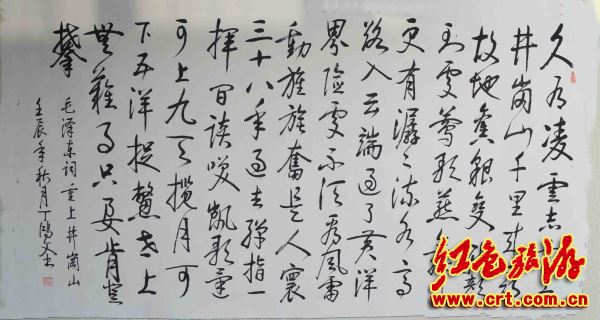 久有凌雲志
井崗山千里来尋
故地舊貌變新顔
到處鶯歌燕舞
更有潺々流水高
路入云端過了黄洋
界險處不須看風雷
動旌旗奮是人寰
三十八年過去彈指一
揮间談笑凱歌還
可上九天攬月可
下五洋捉鱉世上
無難事只要肯登
攀
毛泽东詞重上井崗山
壬辰年秋月丁鴻文书
红色旅游
www.crt.com.cn